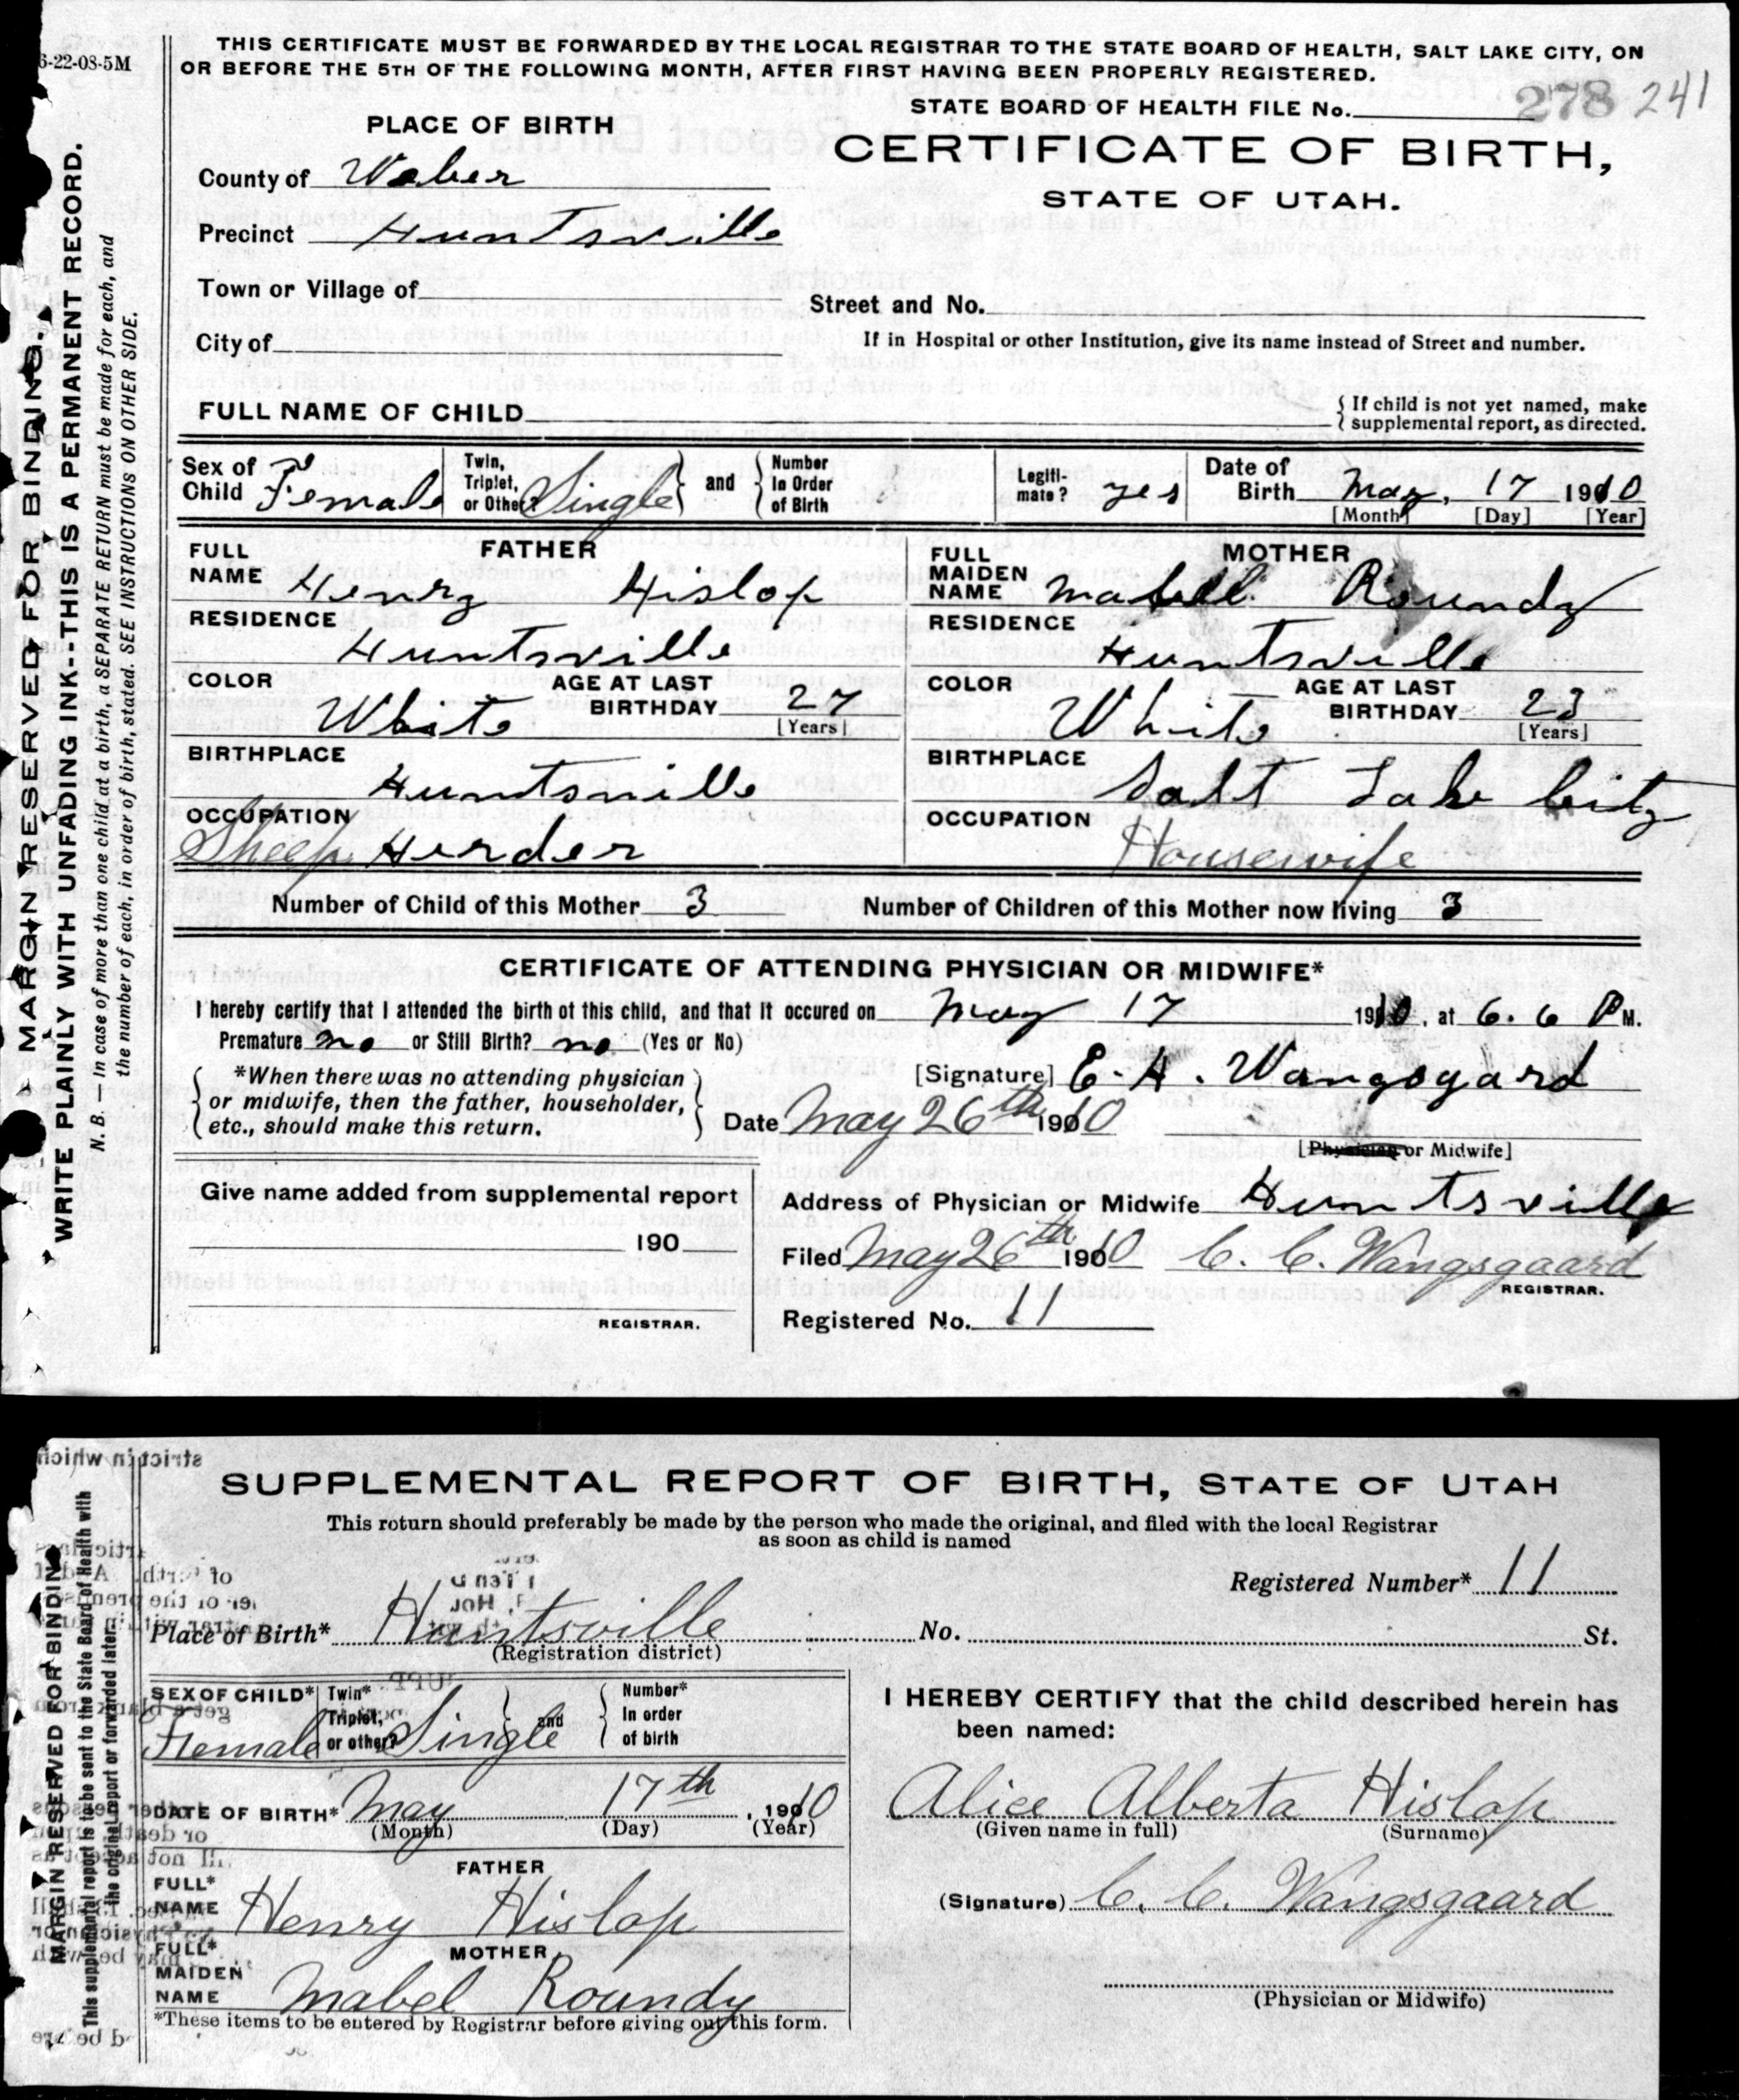 6-22-08-5M
THIS CERTIFICATE MUST BE FORWARDED BY THE LOCAL REGISTRAR TO THE STATE BOARD OF HEALTH, SALT LAKE CITY, ON
OR BEFORE THE 5TH OF THE FOLLOWING MONTH, AFTER FIRST HAVING BEEN PROPERLY REGISTERED.
STATE BOARD OF HEALTH FILE No. 278 241
PLACE OF BIRTH
CERTIFICATE OF BIRTH,
STATE OF UTAH.
County of Weber
Precinct Huntsville
Town or Village of
Street and No.
City of
If in Hospital or other Institution, give its name instead of Street and number.
FULL NAME OF CHILD
{ If child is not yet named, make
{ supplemental report, as directed.
Sex of Child Female
Twin, Triplet, or Other? Single } and { Number In Order of Birth
Legiti-mate? yes
Date of Birth May, 17 1910
[Month] [Day] [Year]
FATHER
FULL NAME Henry Hislop
RESIDENCE
Huntsville
COLOR White AGE AT LAST BIRTHDAY 27
[Years]
BIRTHPLACE
Huntsville
OCCUPATION
Sheep Herder
MOTHER
FULL MAIDEN NAME Mabell Roundy
RESIDENCE
Huntsville
COLOR White AGE AT LAST BIRTHDAY 23
[Years]
BIRTHPLACE
Salt Lake City
OCCUPATION
Housewife
Number of Child of this Mother 3 Number of Children of this Mother now living 3
CERTIFICATE OF ATTENDING PHYSICIAN OR MIDWIFE*
I hereby certify that I attended the birth of this child, and that it occured on May 17 1910, at 6. 6 P M.
Premature no or Still Birth? no (Yes or No)
{ *When there was no attending physician
or midwife, then the father, householder,
etc., should make this return. }
[Signature] E. H. Wangsgard
Date May 26th 1910
[Physician or Midwife]
Give name added from supplemental report
190
REGISTRAR.
Address of Physician or Midwife Huntsville
Filed May 26th 1910 C. C. Wangsgaard
REGISTRAR.
Registered No. 11
MARGIN RESERVED FOR BINDING.
WRITE PLAINLY WITH UNFADING INK--THIS IS A PERMANENT RECORD.
N. B. — In case of more than one child at a birth, a SEPARATE RETURN must be made for each, and
the number of each, in order of birth, stated. SEE INSTRUCTIONS ON OTHER SIDE.
SUPPLEMENTAL REPORT OF BIRTH, STATE OF UTAH
This return should preferably be made by the person who made the original, and filed with the local Registrar
as soon as child is named
Registered Number* 11
Place of Birth* Huntsville No. St.
(Registration district)
SEX OF CHILD* Female
Twin* Triplet, or other? Single } and { Number* In order of birth
DATE OF BIRTH* May 17th, 1910
(Month) (Day) (Year)
FATHER
FULL* NAME Henry Hislop
MOTHER
FULL* MAIDEN NAME Mabel Roundy
*These items to be entered by Registrar before giving out this form.
I HEREBY CERTIFY that the child described herein has
been named:
Alice Alberta Hislop
(Given name in full) (Surname)
(Signature) C. C. Wangsgaard
(Physician or Midwife)
MARGIN RESERVED FOR BINDING
This supplemental report is to be sent to the State Board of Health with
the original report or forwarded later.